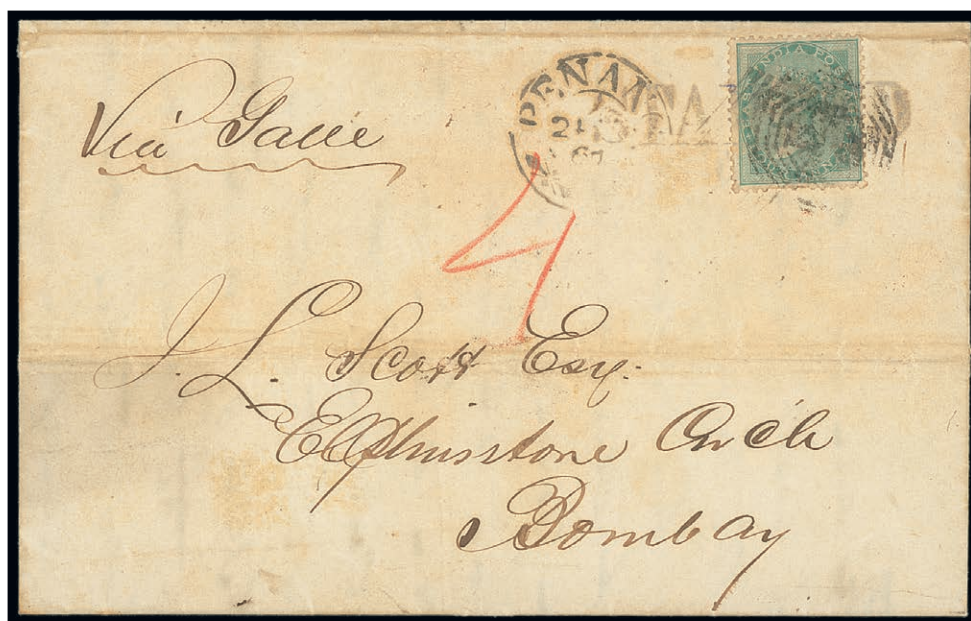 Via Galle
PENAN
67
INDIA POS
4
J. L. Scott Esq.
Elphinstone Circle
Bombay